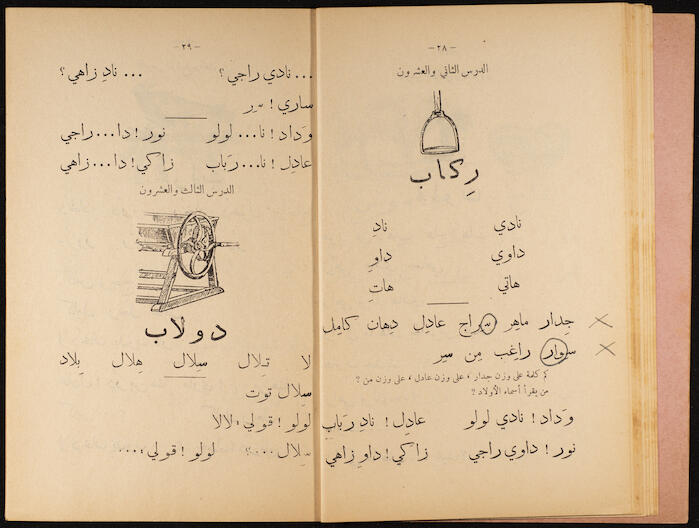 -٢٨-
الدرس الثاني والعشرون
رِكاب
نادي نادِ
داوي داوِ
هاتي هاتِ
جِدار ماهِر سِراج عادِل دِهان كامِل
سِوار راغِب مِن سِر
كم كلمة على وزن جدار ، على وزن عادل ، على وزن من ؟
من يقرأ أسماء الأولاد ؟
وَداد ! نادي لولو عادِل ! نادِ رَباب
نور ! داوي راجي زاكي ! داوِ زاهي
-٢٩-
... نادي راجي ؟ ... نادِ زاهي ؟
ساري ! سِر
وَداد ! نا... لولو نور ! دا... راجي
عادِل ! نا... رَباب زاكي ! دا... زاهي
الدرس الثالث والعشرون
دولاب
لا تِلال سِلال هِلال بِلاد
سِلال توت
لولو ! قولي ، لالا
سِلال ....؟ لولو ! قولي ، ...